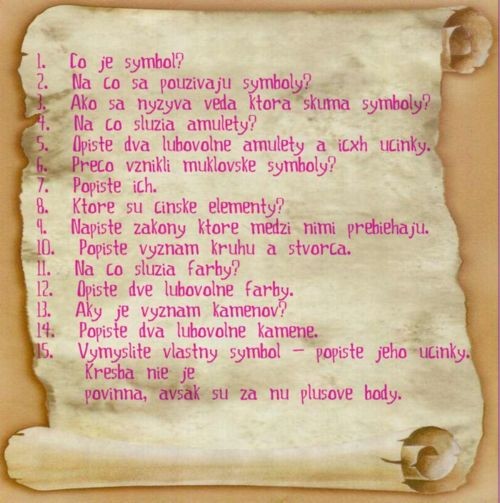 1. Co je symbol?
2. Na co sa pouzivaju symboly?
3. Ako sa nyzyva veda ktora skuma symboly?
4. Na co sluzia amulety?
5. Opiste dva lubovolne amulety a icxh ucinky.
6. Preco vznikli muklovske symboly?
7. Popiste ich.
8. Ktore su cinske elementy?
9. Napiste zakony ktore medzi nimi prebiehaju.
10. Popiste vyznam kruhu a stvorca.
11. Na co sluzia farby?
12. Opiste dve lubovolne farby.
13. Aky je vyznam kamenov?
14. Popiste dva lubovolne kamene.
15. Vymyslite vlastny symbol – popiste jeho ucinky.
Kresba nie je
povinna, avsak su za nu plusove body.